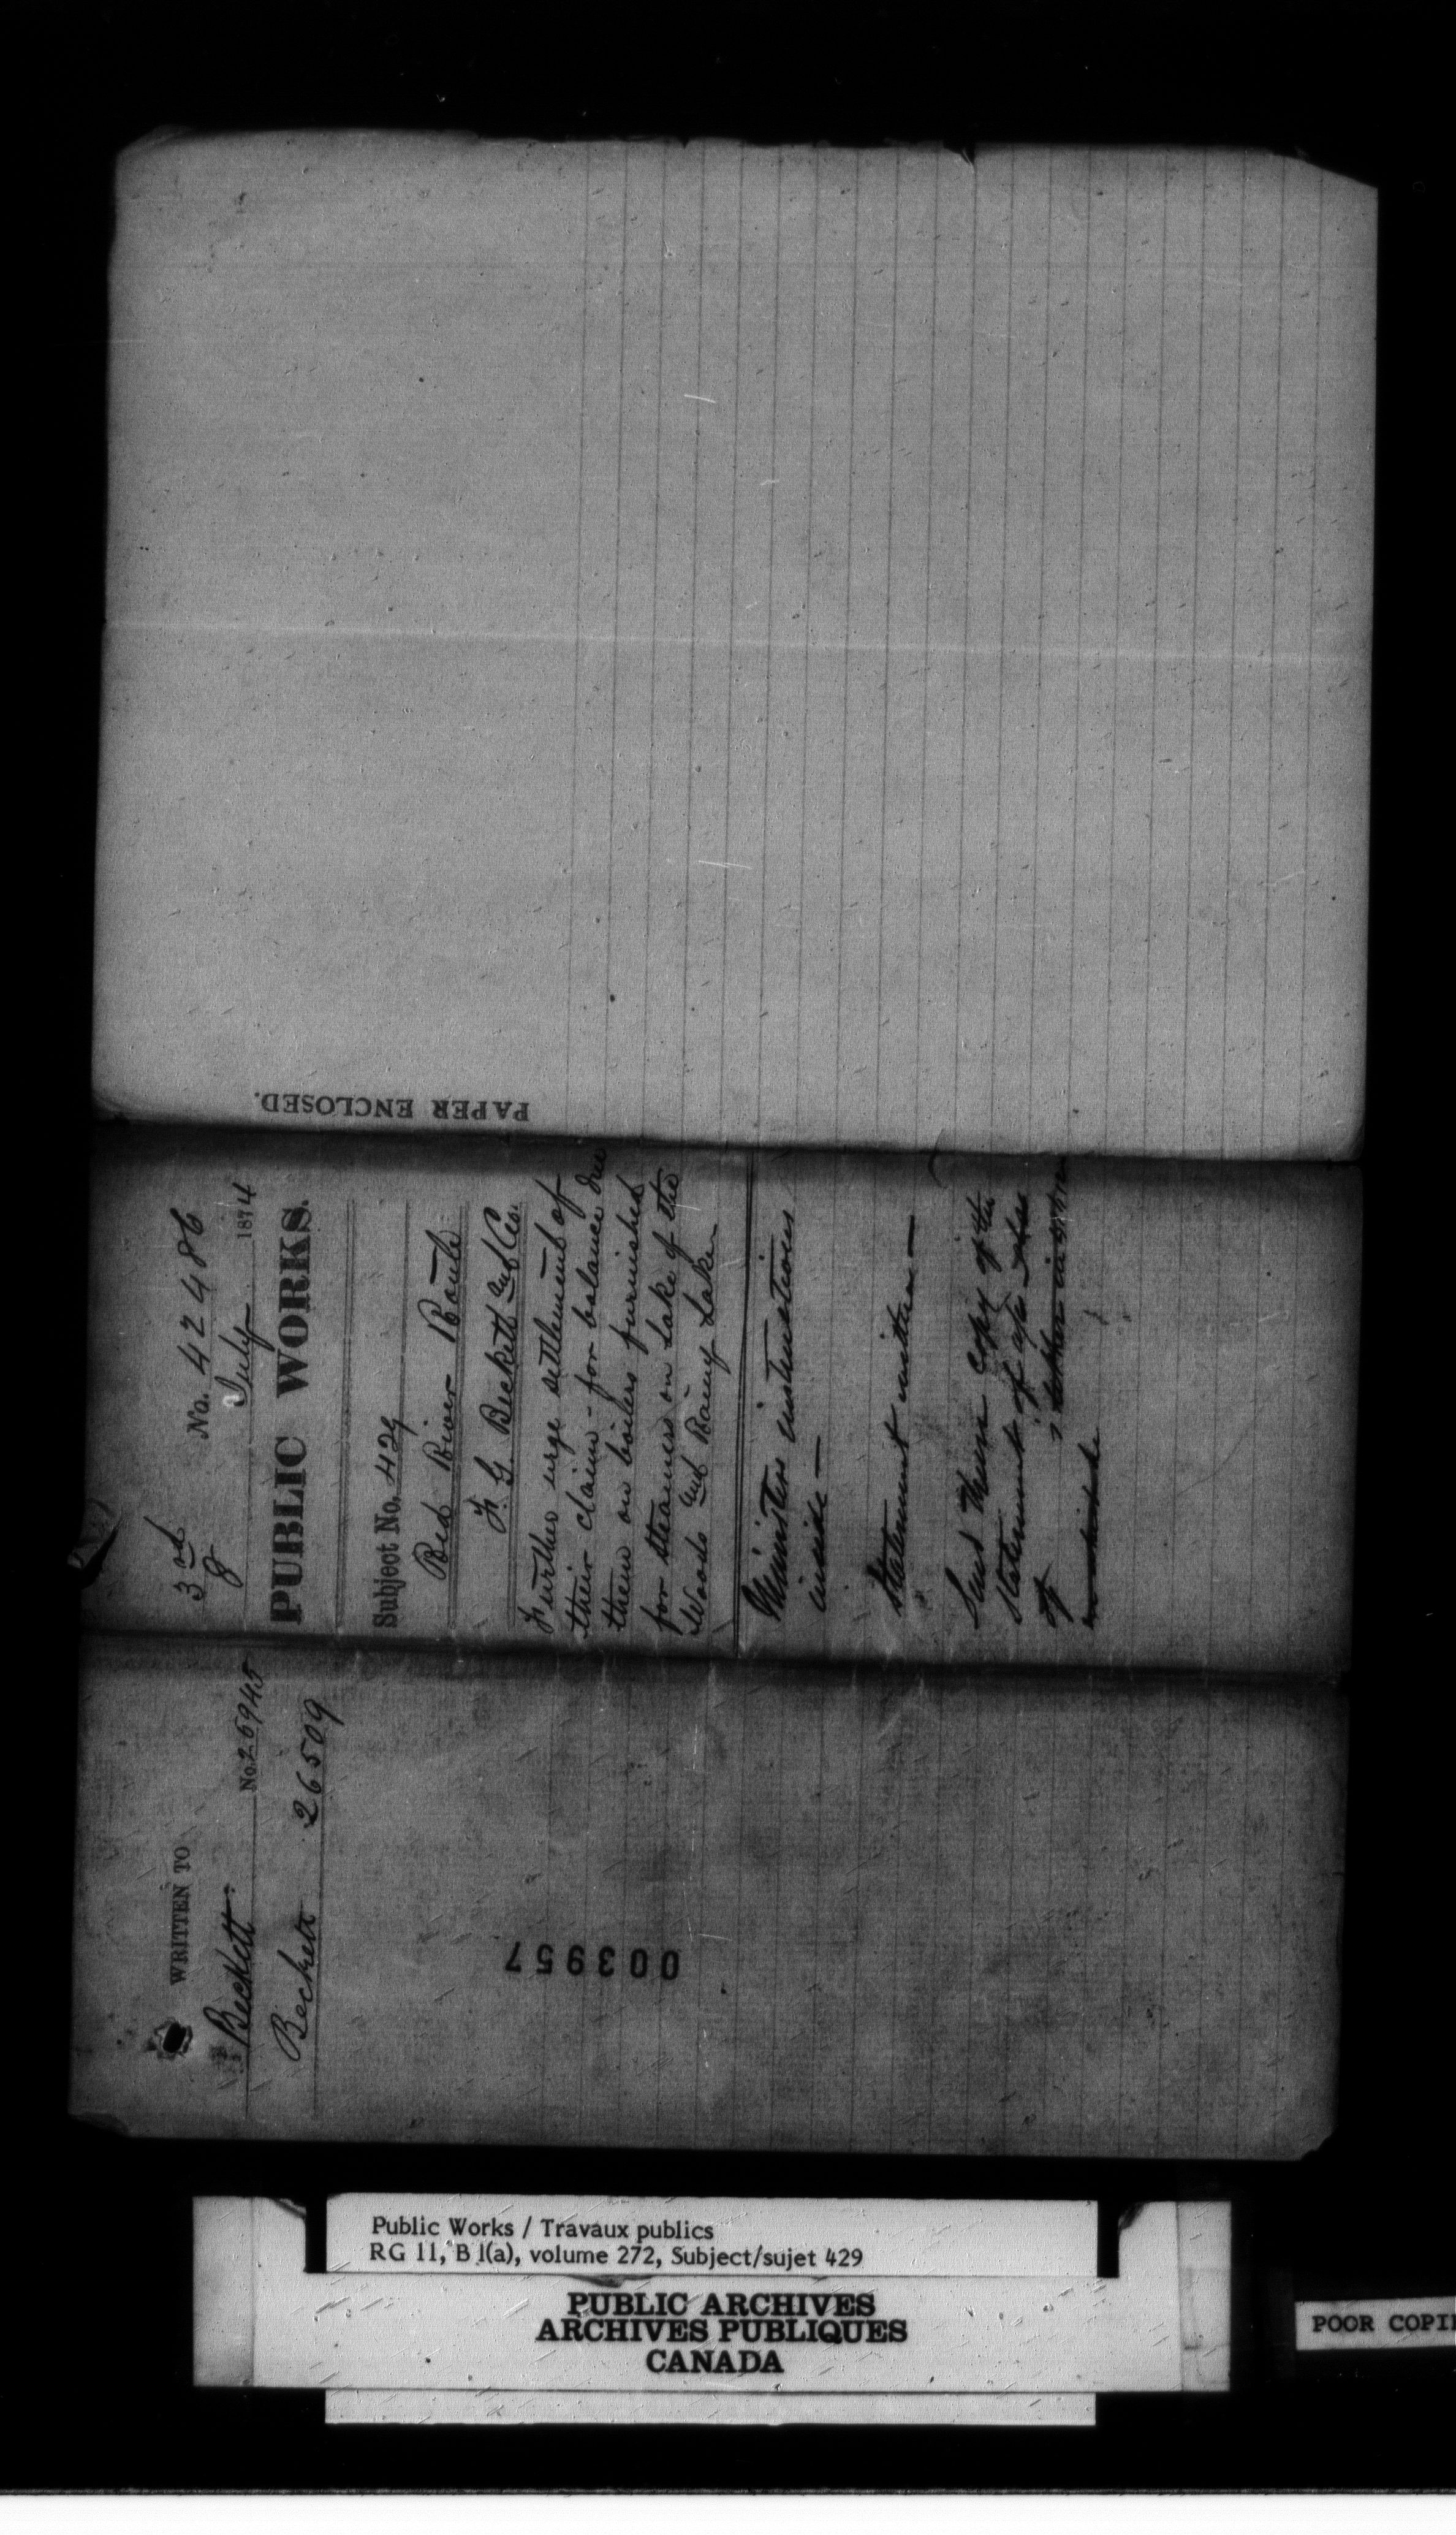 PAPER ENCLOSED.
3rd
8
No. 42486
July 1874
PUBLIC WORKS.
Subject No. 429
Red River Route
F. G. Beckett and Co.
Further urge settlement of
their claim - for balance due
them on boilers furnished
for steamers on Lake of the
Woods and Rainy Lake
Minister instructions
inside -
Statement written -
Send them copy of the
statement of a/c
of
WRITTEN TO
Beckett No. 26945
Beckett 26509
003957
Public Works / Travaux publics
RG 11, B 1(a), volume 272, Subject/sujet 429
PUBLIC ARCHIVES
ARCHIVES PUBLIQUES
CANADA
POOR COPI